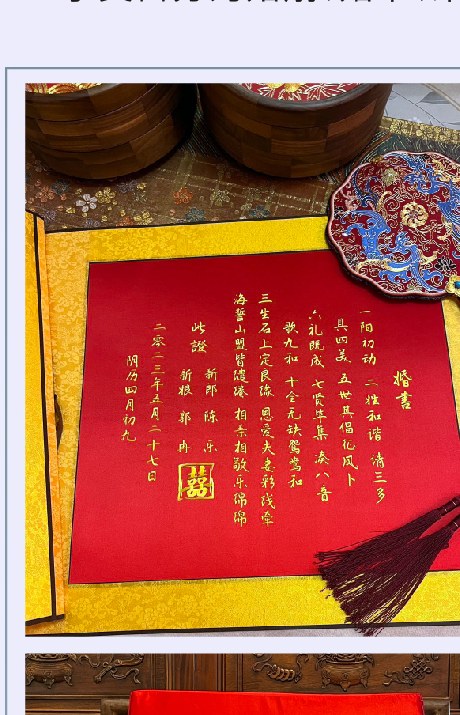 婚書
一阳初动 二姓和谐 请三多
具四美 五世其倡征凤卜
六礼既成 七贤毕集 凑八音
歌九和 十全无缺鸳鸯和
三生石上定良缘 恩爱夫妻彩线牵
海誓山盟皆缱绻 相亲相敬乐绵绵
此證 新郎 陈 乐
新娘 郭 冉
囍
二零二三年五月二十七日
阴历四月初九